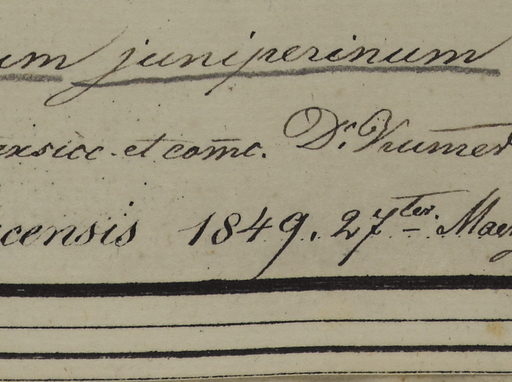 um juniperinum
exsicc. et com̅c. Dr. Kum̅er
censis 1849. 27ter. Maerz